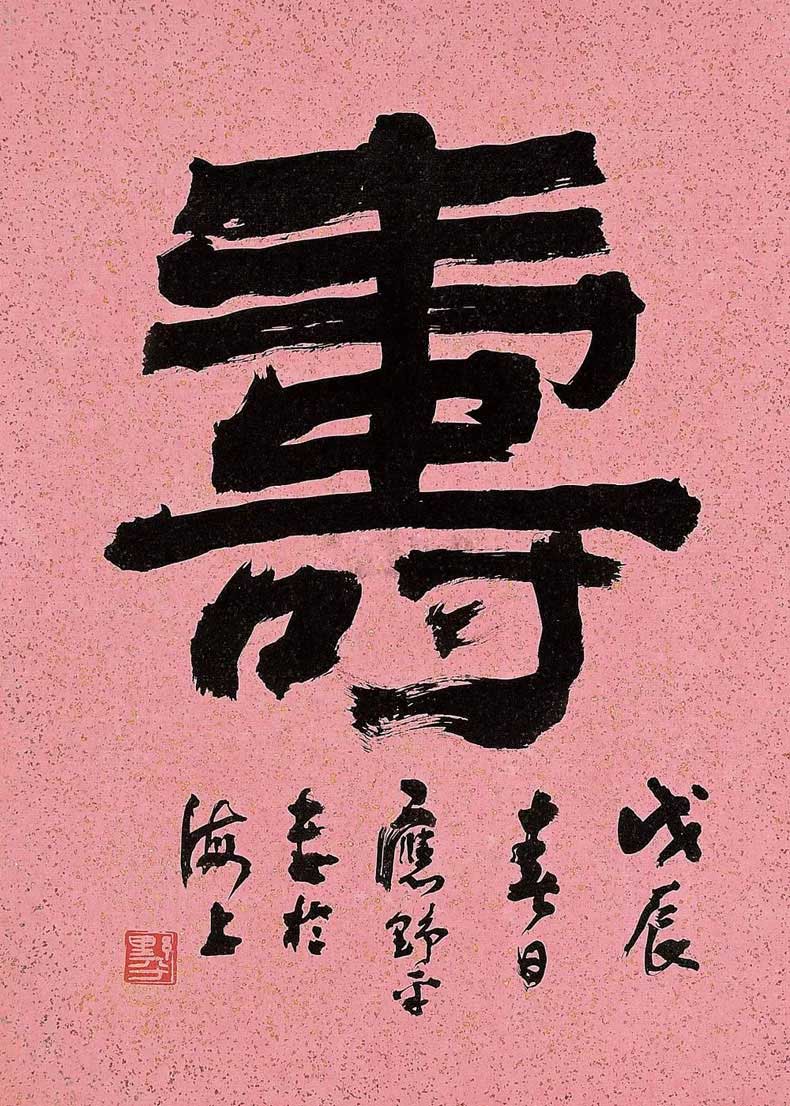 壽
戊辰
春日
應野平
書於
海上
野平